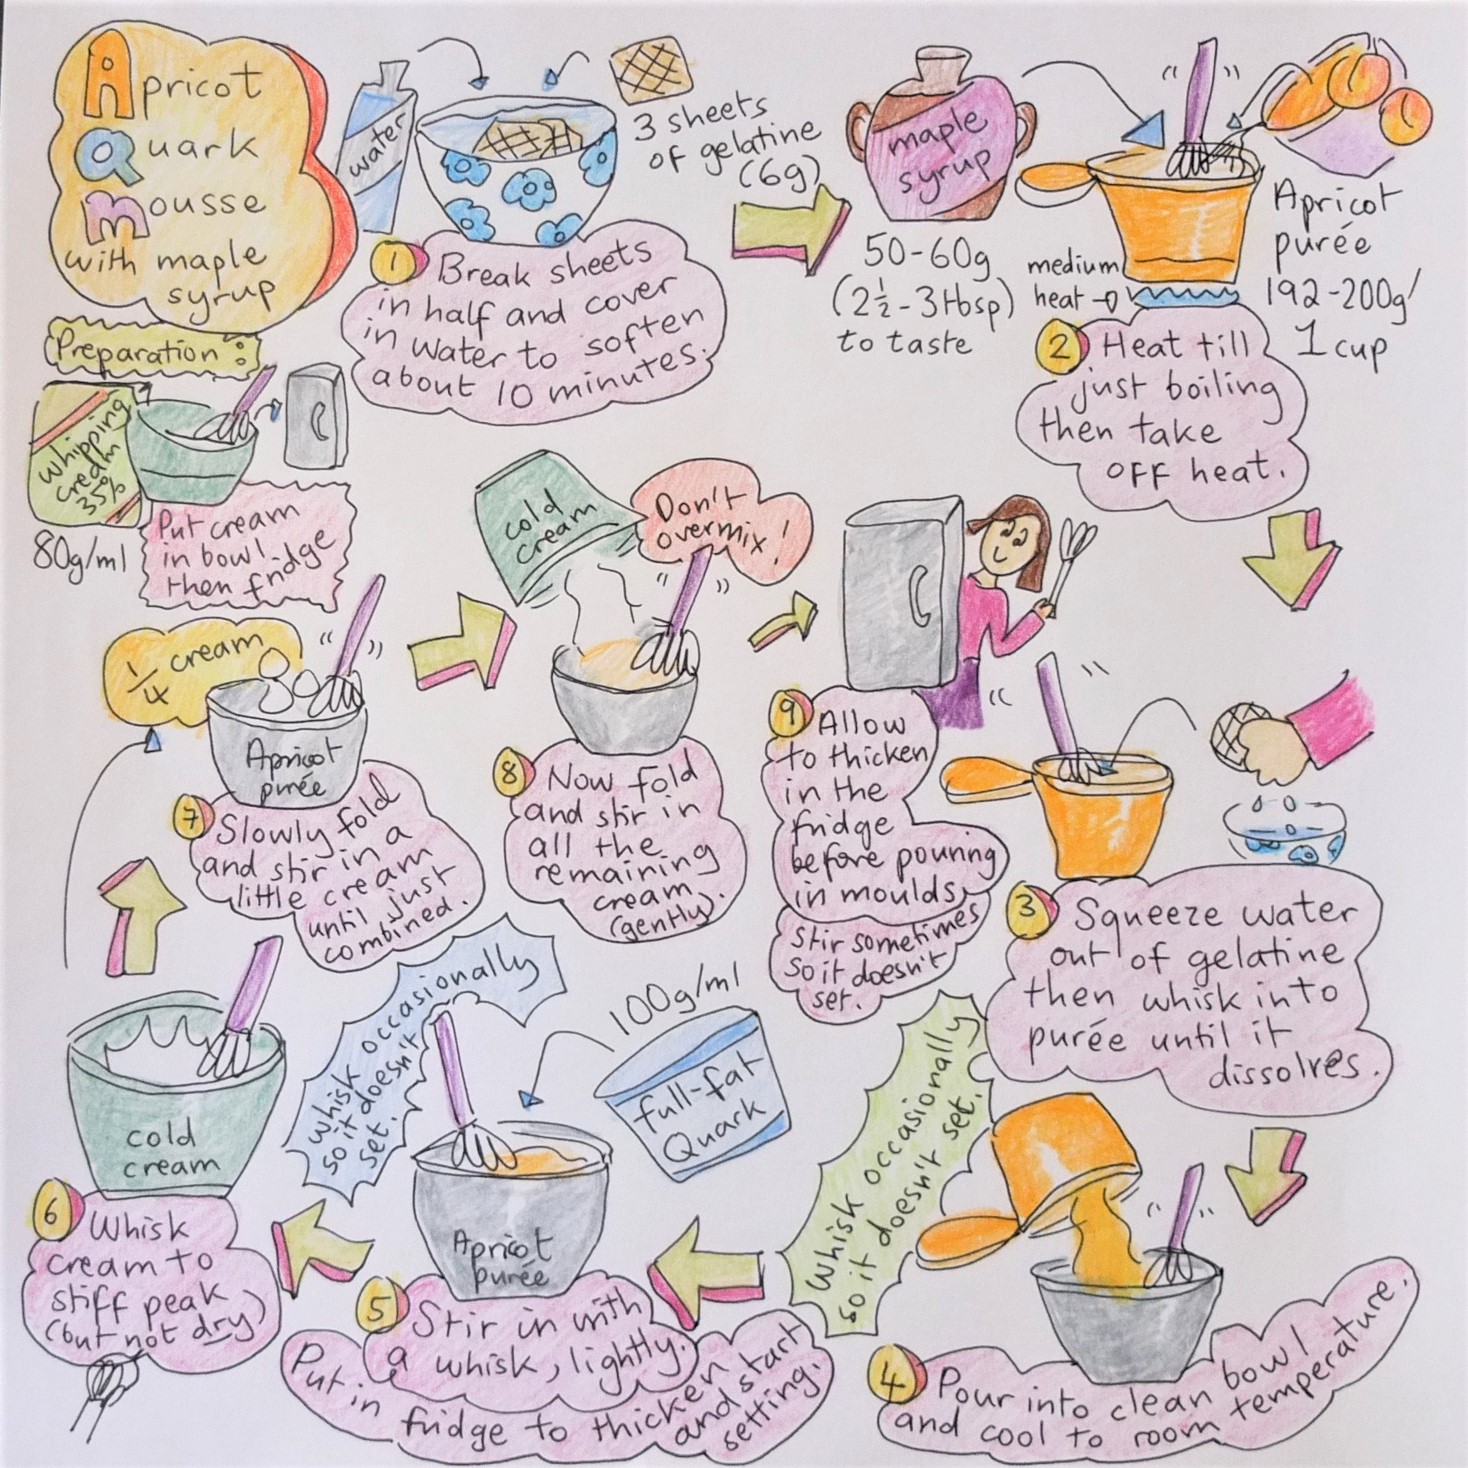 Apricot
Quark
Mousse
with maple
syrup
Preparation:
whipping
cream
35%
80g/ml
Put cream
in bowl
then fridge
water
3 sheets
of gelatine
(6g)
1
Break sheets
in half and cover
in water to soften
about 10 minutes.
maple
syrup
50-60g
(2½-3tbsp)
to taste
medium
heat
Apricot
purée
192-200g/
1 cup
2
Heat till
just boiling
then take
OFF heat.
3
Squeeze water
out of gelatine
then whisk into
purée until it
dissolves.
4
Pour into clean bowl
and cool to room temperature.
Whisk occasionally
so it doesn't set.
full-fat
Quark
100g/ml
Apricot
purée
5
Stir in with
a whisk, lightly.
Put in fridge to thicken
and start
setting.
Whisk occasionally
so it doesn't
set.
cold
cream
6
Whisk
cream to
stiff peak
(but not dry)
¼ cream
Apricot
purée
7
Slowly fold
and stir in a
little cream
until just
combined.
cold
cream
Don't
overmix!
8
Now fold
and stir in
all the
remaining
cream
(gently).
9
Allow
to thicken
in the
fridge
before pouring
in moulds
Stir sometimes
so it doesn't
set.